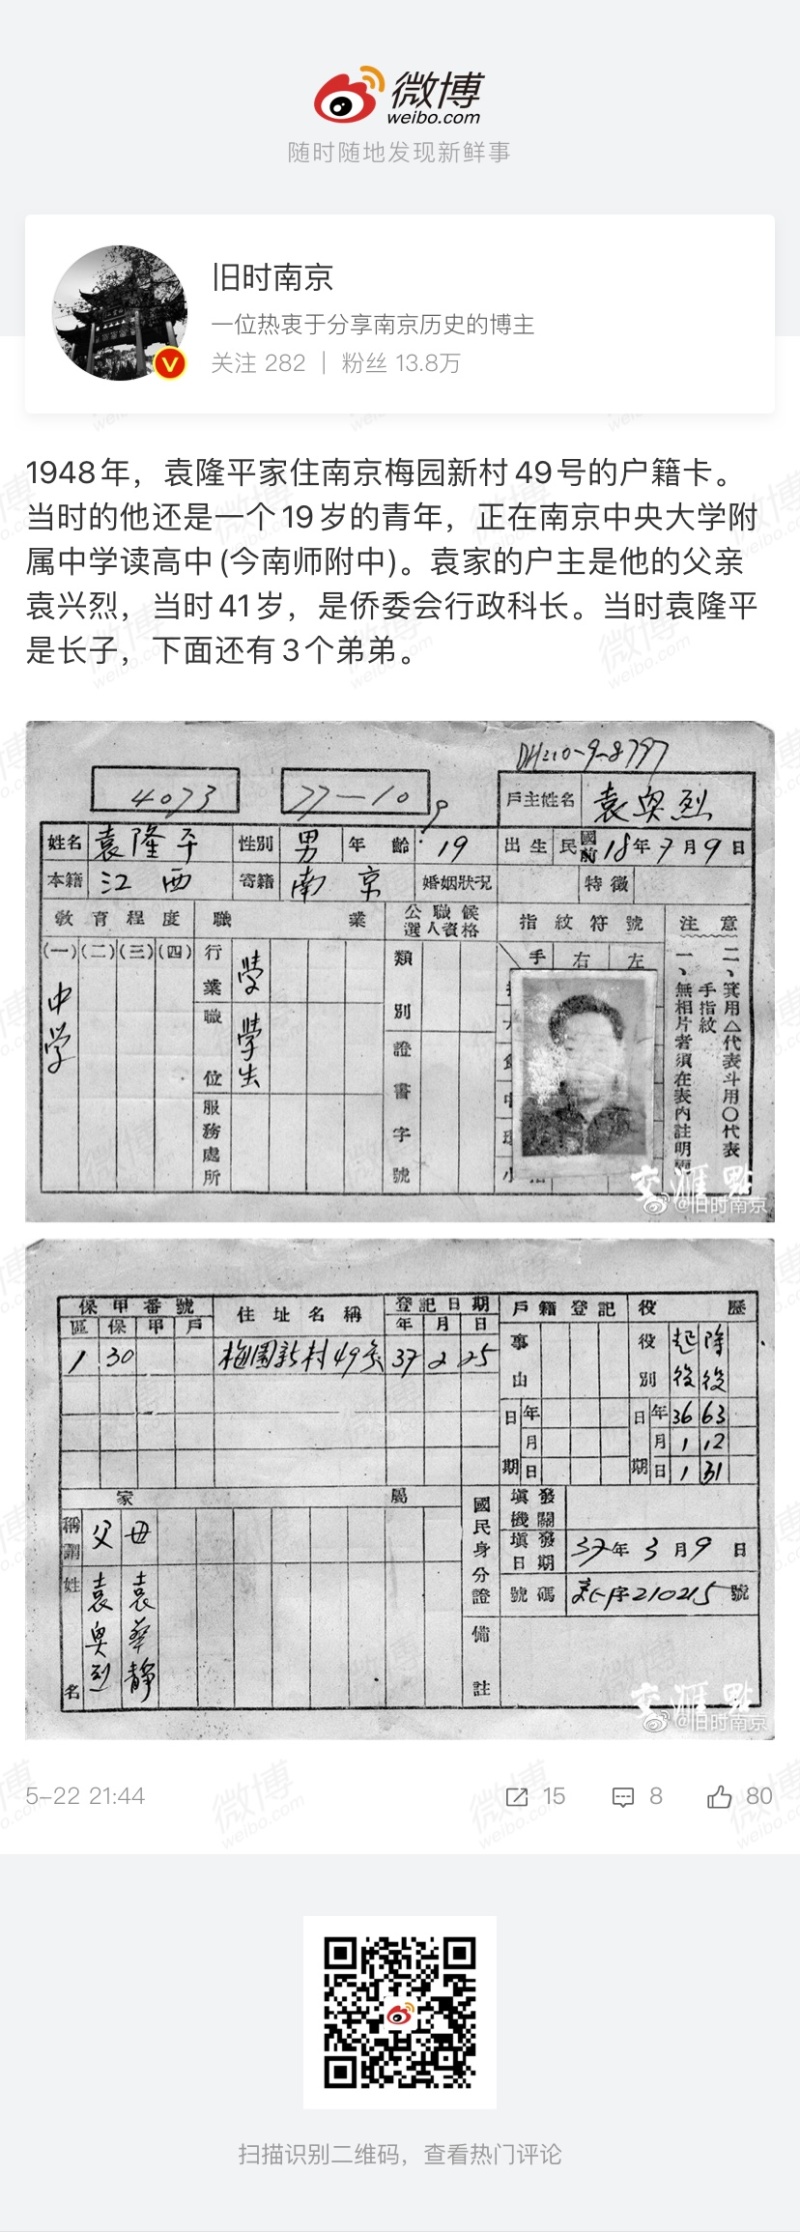 微博
weibo.com
随时随地发现新鲜事
旧时南京
一位热衷于分享南京历史的博主
关注 282 | 粉丝 13.8万
1948年，袁隆平家住南京梅园新村49号的户籍卡。
当时的他还是一个19岁的青年，正在南京中央大学附
属中学读高中(今南师附中)。袁家的户主是他的父亲
袁兴烈，当时41岁，是侨委会行政科长。当时袁隆平
是长子，下面还有3个弟弟。
4073
77-10
9
戶主姓名 袁興烈
姓名 袁隆平 性別 男 年齡 19 出生民國前 18年7月9日
本籍 江西 寄籍 南京 婚姻狀况 特徵
教育程度 職業 公職候選人資格 指紋符號 注意
(一)(二)(三)(四)
中学
行業
學
職位
學生
服務處所
類別
證書字號
手 右 左
一、無相片者須在表內註明
二、箕用△代表斗用〇代表
手指紋
交滙點
@旧时南京
保甲番號 住址名稱 登記日期 戶籍登記 役歷
區 保 甲 戶 年 月 日
1 30 梅園新村49号 37 2 25
事由
日期 年 月 日
役別 起役 除役
日期 年 36 63
月 1 12
日 1 31
家屬
稱謂 父 母
姓名 袁興烈 袁華靜
國民身分證
填發機關
填發日期 37年3月9日
號碼 字210215號
備註
交滙點
@旧时南京
5-22 21:44 15 8 80
扫描识别二维码，查看热门评论